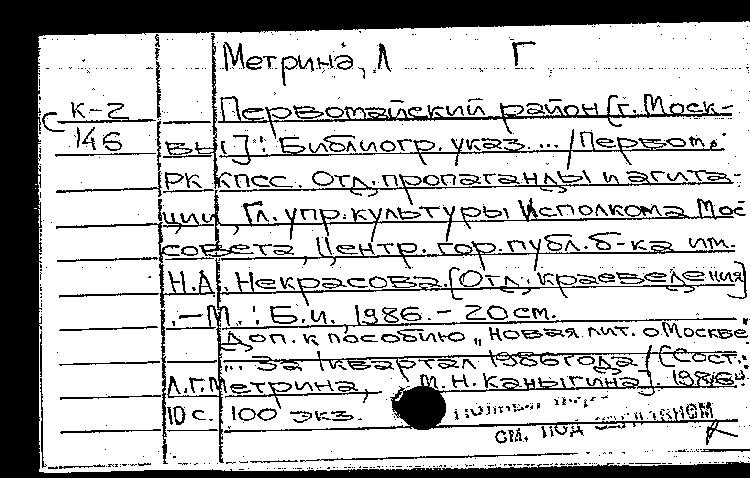 Метрина, Л Г
С К-2 Первомайский район [г. Моск-
146 вы] : Библиогр. указ. ... / Первом.
РК КПСС. Отд. пропаганды и агита-
ции, Гл. упр. культуры Исполкома Мос
совета, Центр. гор. публ. б-ка им.
Н.А. Некрасова. [Отд. краеведения]
. – М. : Б.и., 1986. – 20 см.
Доп. к пособию „Новая лит. о Москве
... за I квартал 1986 года / [Сост.:
Л.Г. Метрина, М.Н. Каныгина]. 1986.
10 с. 100 экз.
см. под заглавием